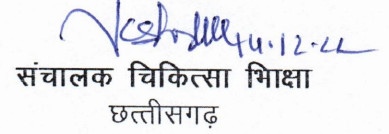 14.12.22
संचालक चिकित्सा भिाक्षा
छत्तीसगढ़